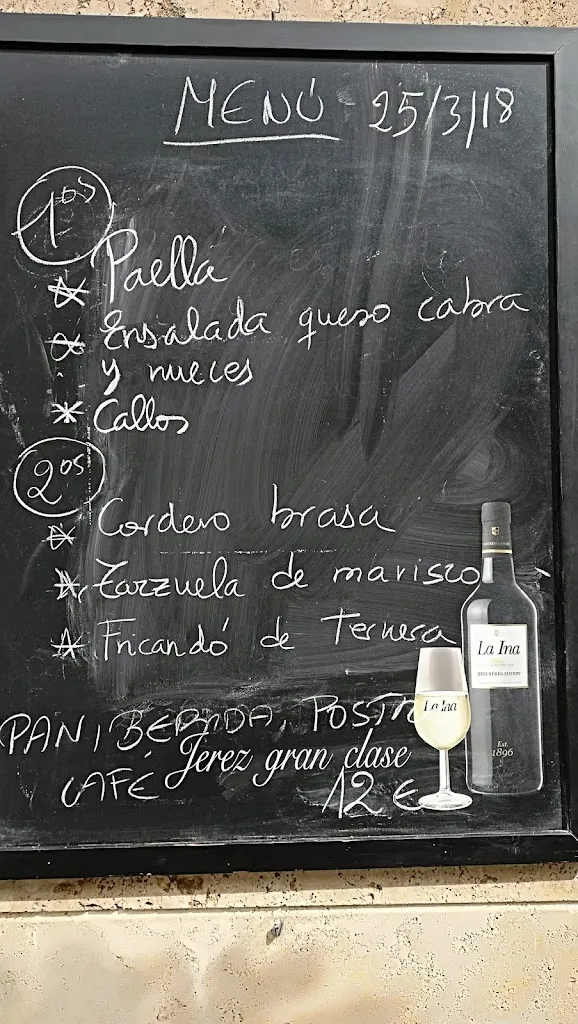 MENÚ - 25/3/18
1os
* Paella
* Ensalada queso cabra
y nueces
* Callos
2os
* Cordero brasa
* Zarzuela de marisco
* Fricandó de Ternera
La Ina
La Ina
Est.
1896
PAN, BEBIDA, POSTRE
Jerez gran clase
CAFÉ 12 €